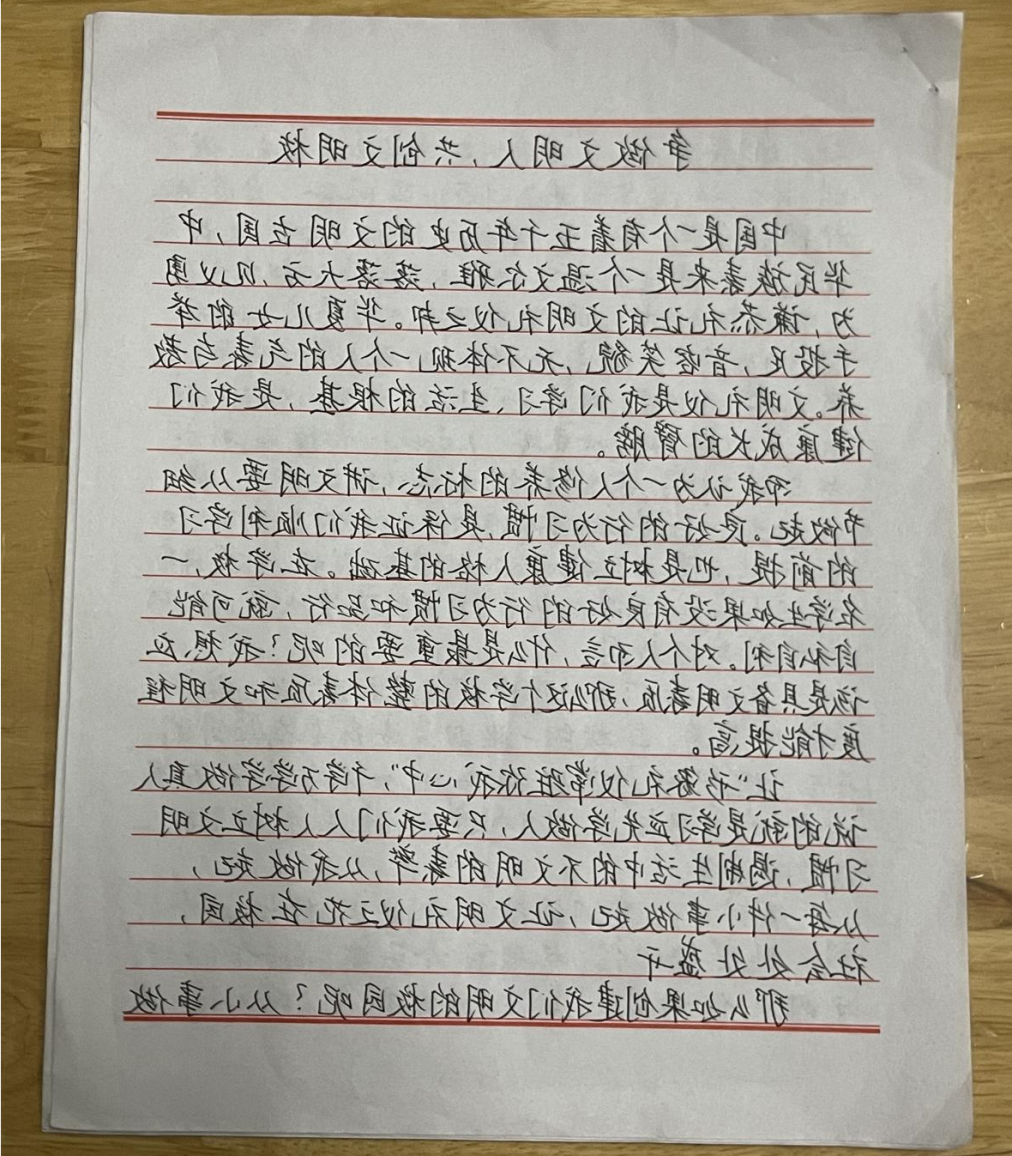 争做文明人，共创文明校
中国是一个有着五千年历史的文明古国，中
华民族素来是一个温文尔雅，落落大方，见义勇
为，谦恭礼让的文明礼仪之邦。华夏儿女的举
手投足，音容笑貌，无不体现一个人的气素与教
养。文明礼仪是我们学习、生活的根基，是我们
健康成长的臂膀。
而我认为一个人修养的标志，讲文明要从细
节做起。良好的行为习惯，是保证我们顺利学习
的前提，也是树立健康人格的基础。在学校，一
名学生如果没有良好的行为习惯和品行，就可能
自私自利。对个人而言，什么是最重要的呢？我想，应
该是具备文明素质，那么这个学校的整体素质和文明程
度才能提高。
让"形象礼仪常驻你我心中"，千学万学学做真人
说的就是学习应先学做人，只要我们人人树立文明
习惯，遏制生活中的不文明的素举，从我做起，
从每一件小事做起，让文明礼仪之花在校园，
社会处处盛开
那么如果创建我们文明的校园呢？从小事做